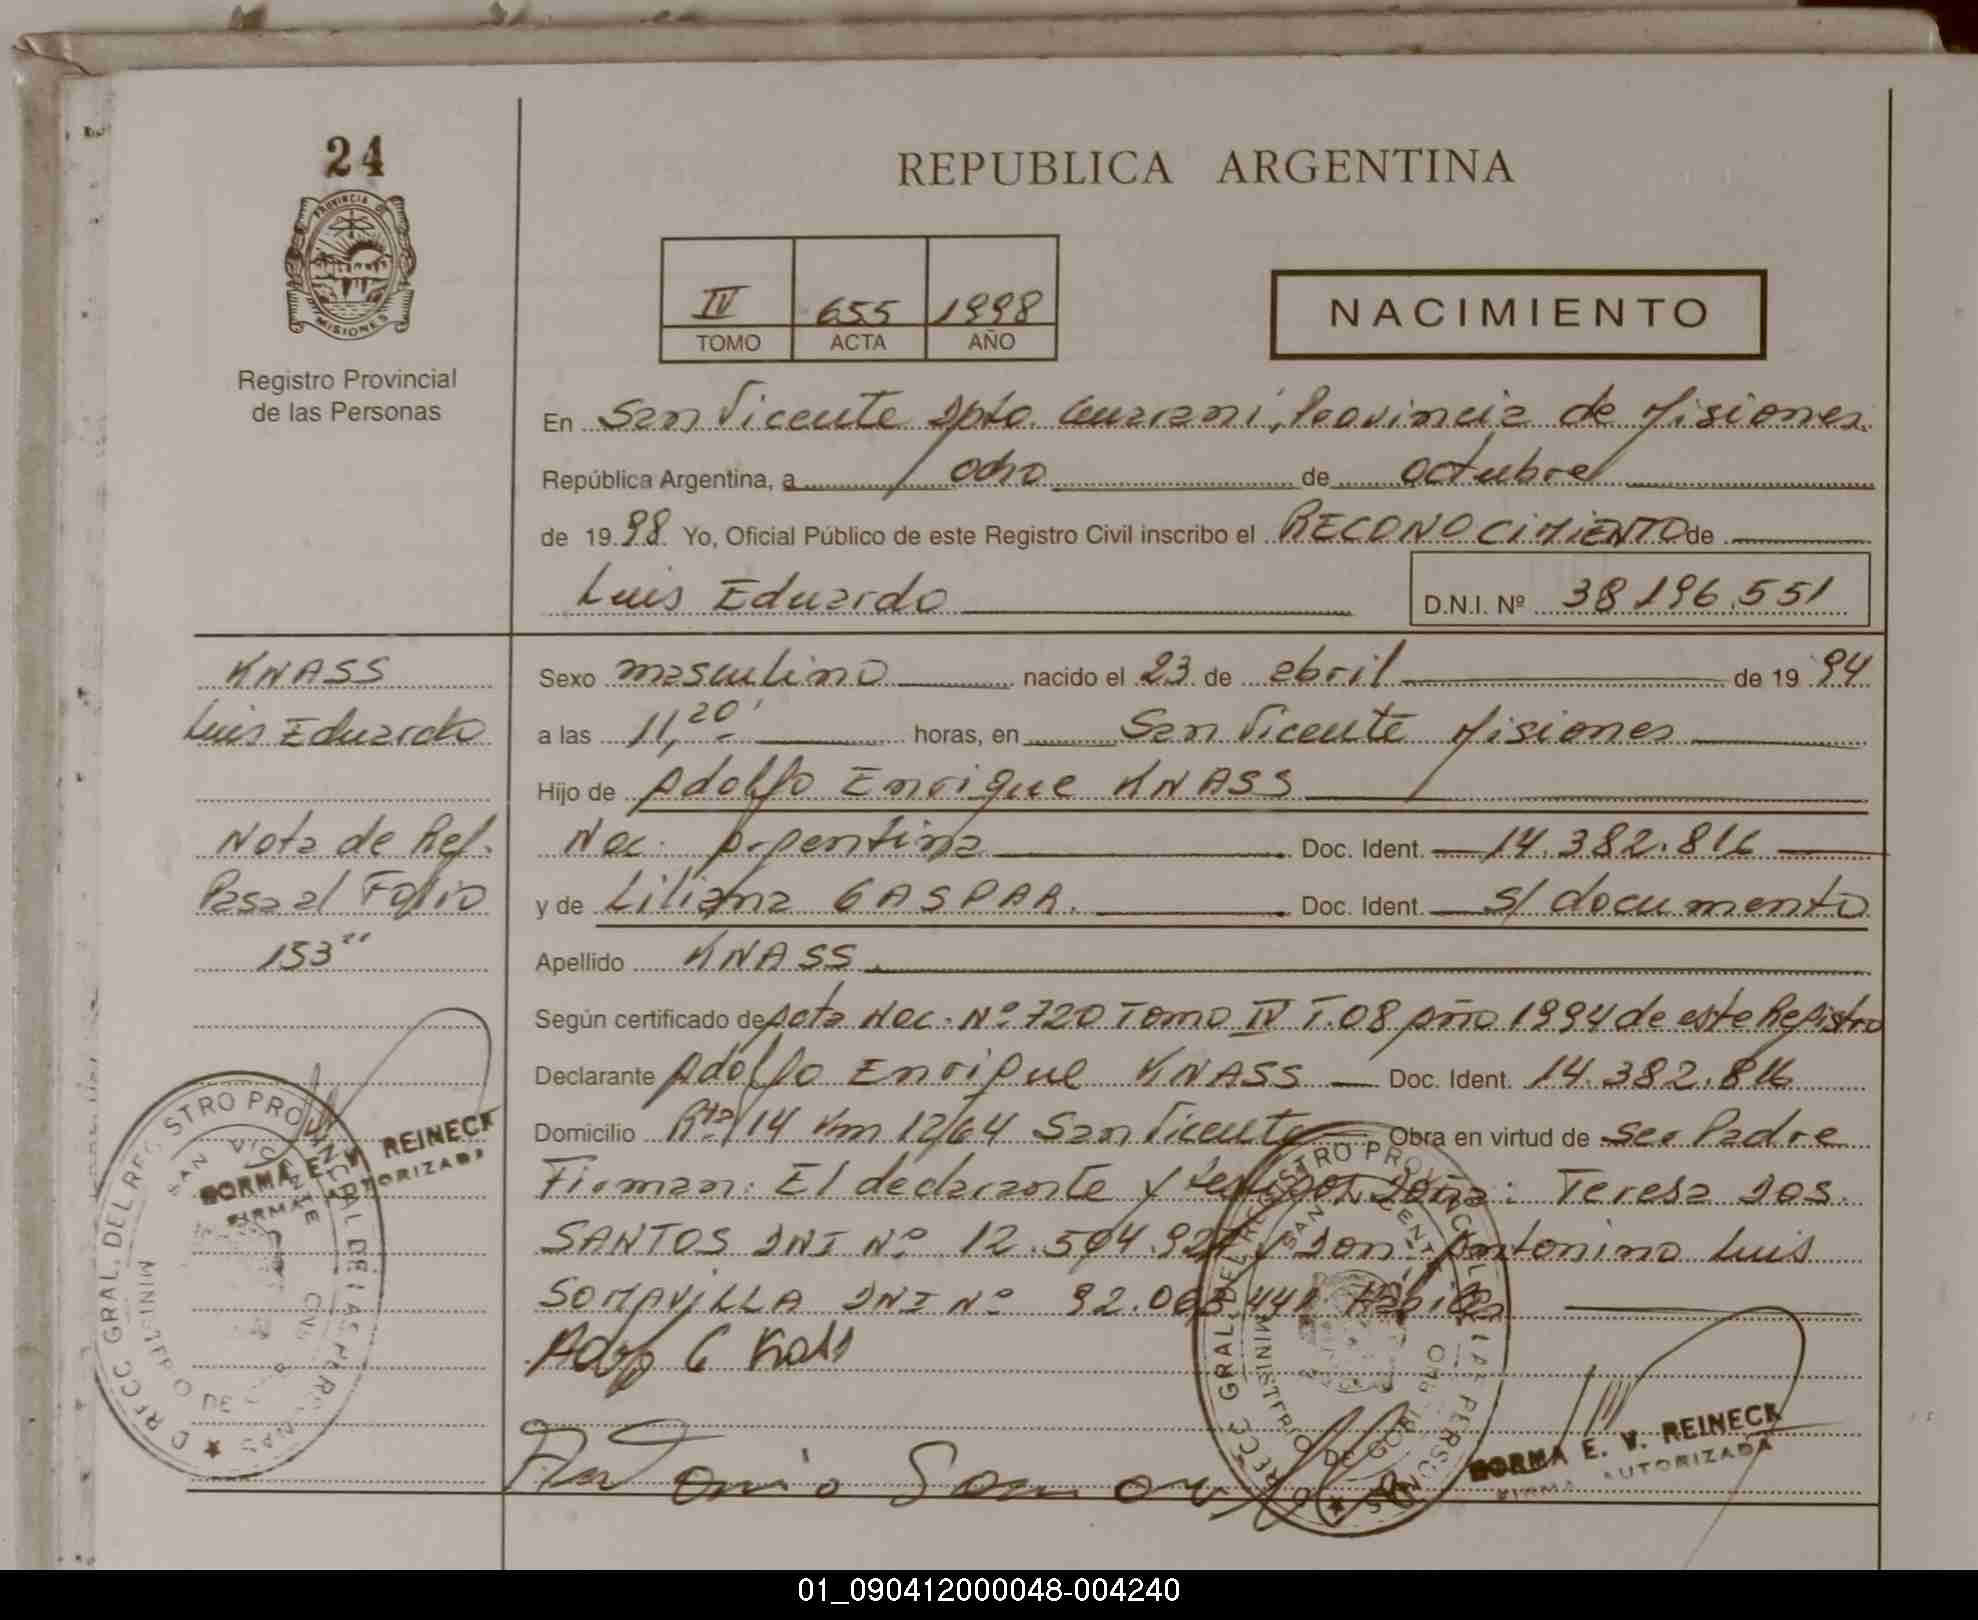 24
REPUBLICA ARGENTINA
PROVINCIA DE
MISIONES
Registro Provincial
de las Personas
IV 655 1998
TOMO ACTA AÑO
NACIMIENTO
En San Vicente Dpto. Guaraní, Provincia de Misiones.
República Argentina, a ocho de octubre
de 1998. Yo, Oficial Público de este Registro Civil inscribo el RECONOCIMIENTO de
Luis Eduardo D.N.I. Nº 38.196.551
KNASS
Luis Eduardo
Nota de Ref.
Pasa al Folio
153"
Sexo masculino nacido el 23 de abril de 1994
a las 11,20' horas, en San Vicente Misiones
Hijo de Adolfo Enrique KNASS
Nac. Argentina Doc. Ident. 14.382.816
y de Liliana GASPAR. Doc. Ident. s/ documento
Apellido KNASS
Según certificado de Acta Nac. Nº 720 Tomo IV T.08 Año 1994 de este Registro
Declarante Adolfo Enrique KNASS Doc. Ident. 14.382.816
Domicilio Rta 14 Km 1264 San Vicente Obra en virtud de ser Padre
Firman: El declarante y testigos Doña: Teresa DOS
SANTOS DNI Nº 12.504.927 y Don Antonino Luis
SOMAVILLA DNI Nº 92.063.441 Hábiles
DIRECC GRAL. DEL REGISTRO PROVINCIAL DE LAS PERSONAS
SAN VICENTE
MINISTERIO DE
NORMA E. V. REINECK
FIRMA AUTORIZADA
DIRECC GRAL. DEL REGISTRO PROVINCIAL DE LAS PERSONAS
SAN VICENTE
MINISTERIO DE GOBIERNO
NORMA E. V. REINECK
FIRMA AUTORIZADA
01_090412000048-004240